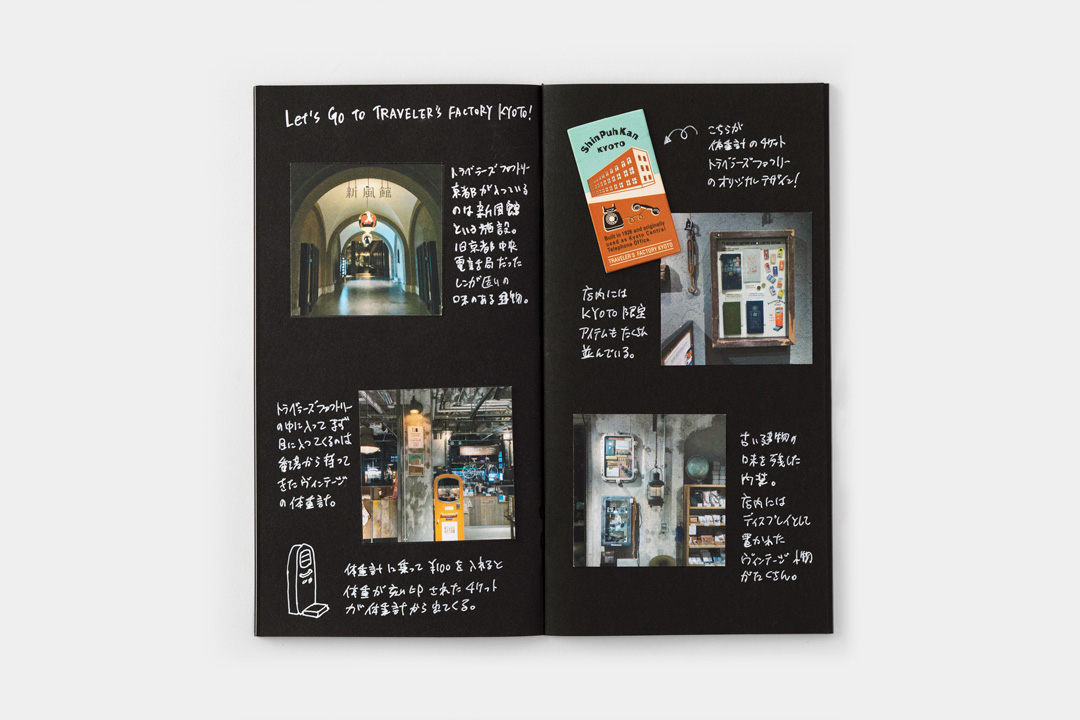 Let's Go to TRAVELER'S FACTORY KYOTO!
新風館
トラベラーズファクトリー
京都が入っている
のは新風館
という施設。
旧京都中央
電話局だった
レンガ造りの
味のある建物。
トラベラーズファクトリー
の中に入ってまず
目に入ってくるのは
香港から持って
きたヴィンテージ
の体重計。
体重計に乗って ¥100を入れると
体重が刻印されたチケット
が体重計から出てくる。
ShinPuhKan
KYOTO
Built in 1926 and originally
used as Kyoto Central
Telephone Office.
TRAVELER'S FACTORY KYOTO
こちらが
体重計のチケット
トラベラーズファクトリー
のオリジナルデザイン!
店内には
KYOTO限定
アイテムもたくさん
並んでいる。
古い建物の
味を残した
内装。
店内には
ディスプレイとして
置かれた
ヴィンテージ小物
がたくさん。